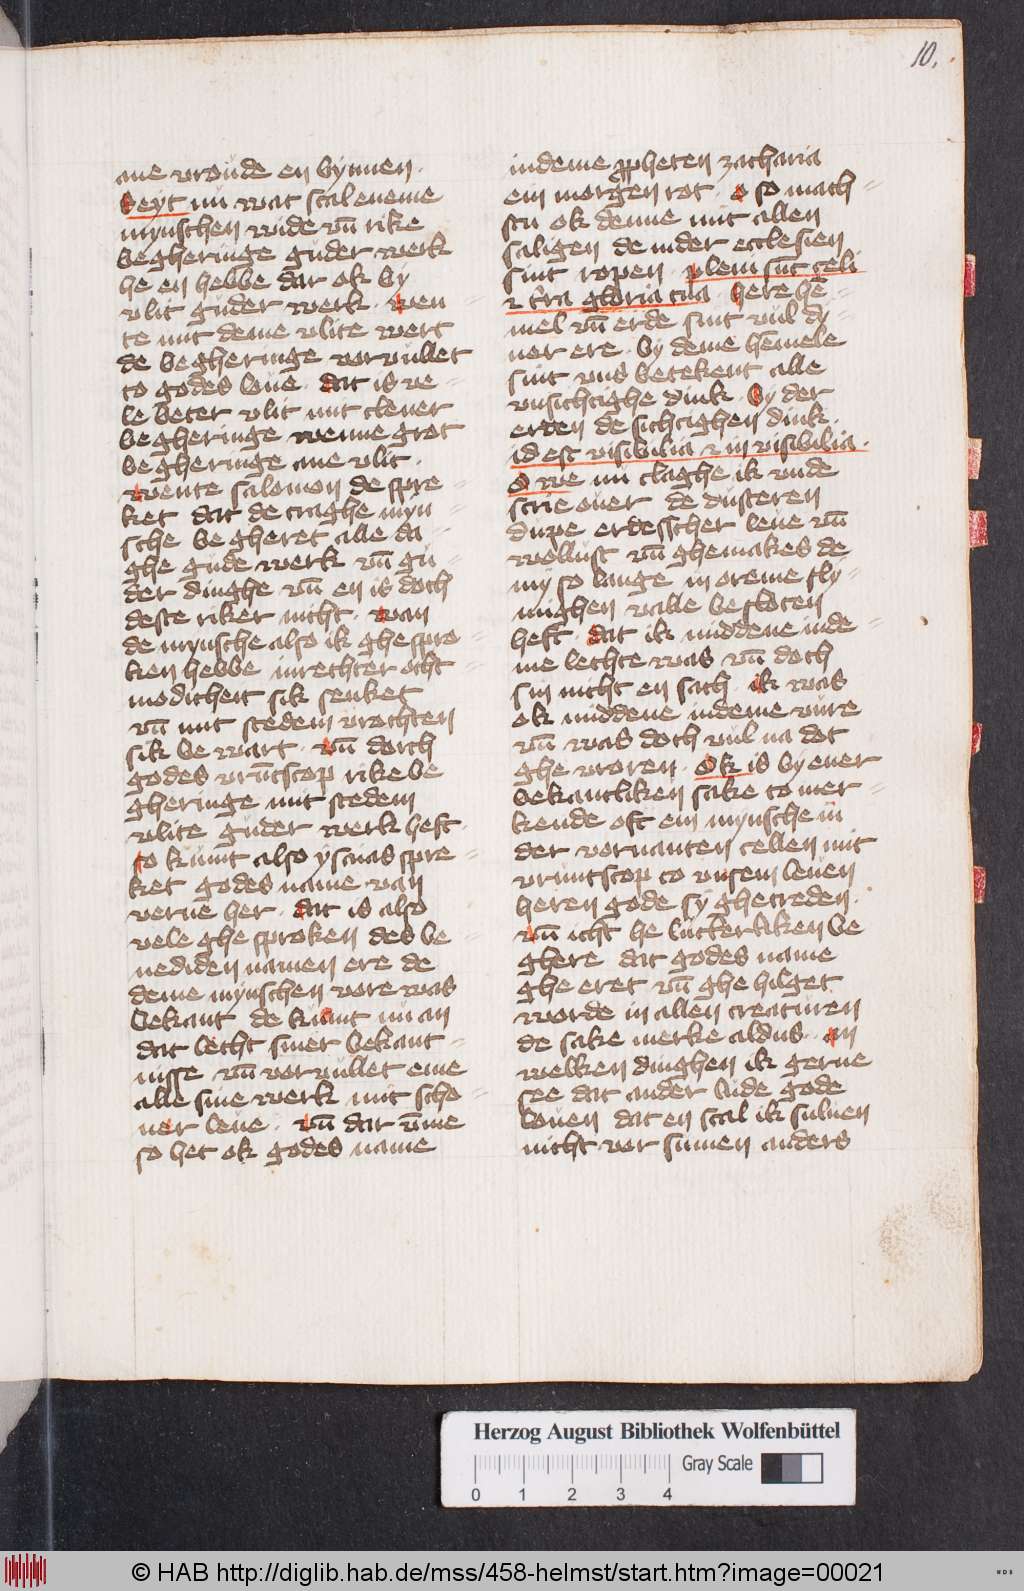 10.
ane vroude en bynnen.
beyt nu wat scal eneme
mynschen wide vn̄ rike
begheringe guder werk
he en hebbe dar ok by
vlit guder werk. wen
te mit deme vlite wert
de begheringe vorvullet
to godes loue. dat is ve=
le beter vlit mit clener
begheringe wenne grot
begheringe ane vlit.
wente salomon de spre=
ket dat de traghe myn=
sche begheret alle da=
ghe gude werk vn̄ gu=
der dinghe vn̄ en is doch
deste riker nicht. wan
de mynsche also ik ghespro=
ken hebbe in rechter oth=
modicheit sik senket
vn̄ mit stedem vrochten
sik bewart. vn̄ dorch
godes vrūtscop rike be
gheringe mit stedem
vlite guder werk heft.
to kumt also ysaias spre=
ket godes name van
verne her. dat is also
vele ghesproken des be=
nediden namen ere de
deme mynschen vore was
bekant de kumt nu an
dat lecht siner bekant=
nisse vn̄ vorvullet eme
alle sine werk mit scho=
ner leue. vn̄ dar v̄me
so het ok godes name
in deme ꝓpheten zacharia
ein morgen rot. o so mach=
stu ok denne mit allen
saligen de in der ecclesien
sint ropen. pleni sūt celi
⁊ t̄ra gloria tua. here he=
mel vn̄ erde sint vul dy=
ner ere. by deme hemele
sint vns betekent alle
vnsichtighe dink. by der
erden de sichtighen dink.
id est visibilia ⁊ in visibilia.
O we nu claghe ik vnde
scrie ouer de dusteren
dupe erdesscher leue vn̄
wollust vn̄ ghemakes de
my so lange in oreme sly=
mighen valle besloten
heft. dat ik middene inde=
me lechte was vn̄ doch
sin nicht en sach. ik was
ok middene indeme vure
vn̄ was doch vul na dot
ghe vroren. Ok is by ener
bekantliken sake to mer=
kende oft ein mynsche in
der vorvanten cellen mit
vruntscop to vnsem leuen
heren gode sy ghetreden.
vn̄ icht he luckerliken be
ghere dat godes name
ghe eret vn̄ ghe hilget
worde in allen creaturen
de sake merke aldus. an
welken dinghen ik gerne
see dat ander lude gode
louen dat en scal ik suluen
nicht vor sumen anders
Herzog August Bibliothek Wolfenbüttel
Gray Scale
0 1 2 3 4
© HAB http://diglib.hab.de/mss/458-helmst/start.htm?image=00021